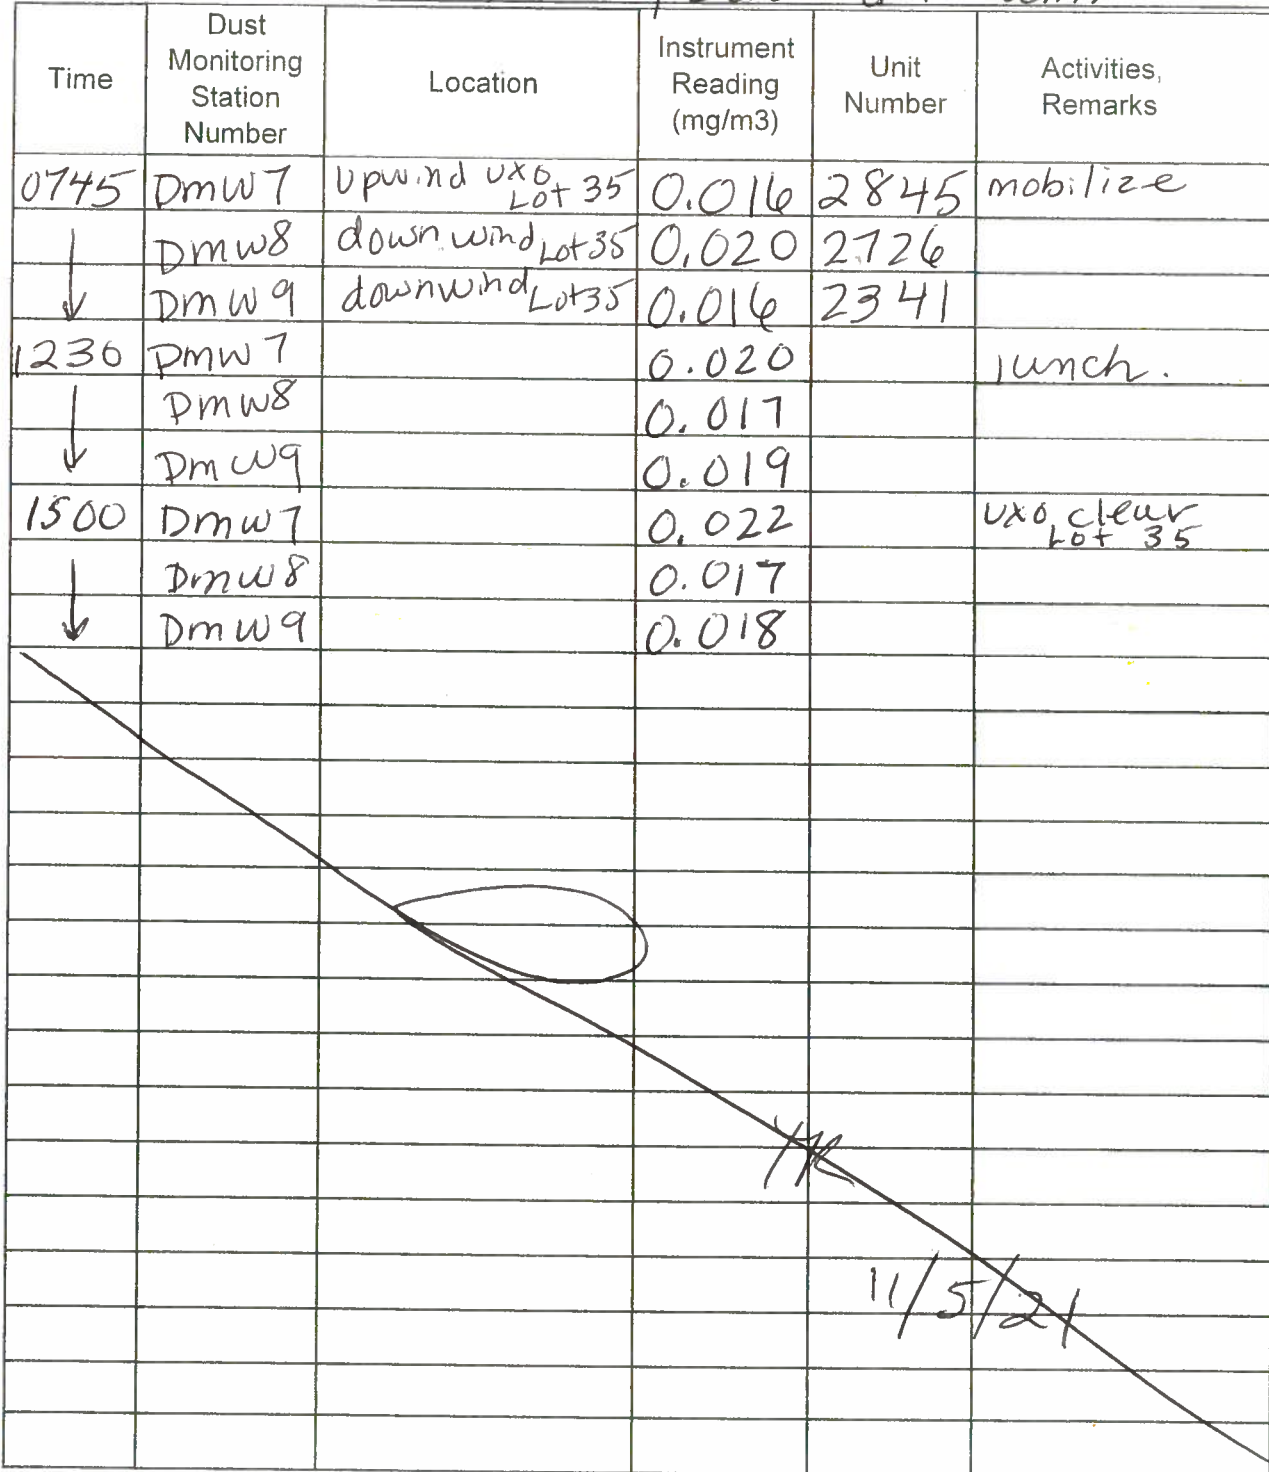 Time Dust Monitoring Station Number Location Instrument Reading (mg/m3) Unit Number Activities, Remarks
0745 Dmw7 Upwind UXO Lot 35 0.016 2845 mobilize
Dmw8 downwind Lot 35 0.020 2726
Dmw9 downwind Lot 35 0.016 2341
1230 Dmw7 0.020 lunch.
Dmw8 0.017
Dmw9 0.019
1500 Dmw7 0.022 UXO clear Lot 35
Dmw8 0.017
Dmw9 0.018
11/5/21